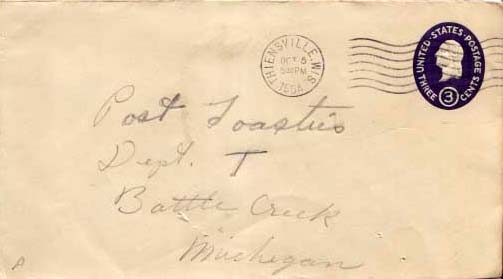 THIENSVILLE, WIS.
OCT 5
PM
1954
UNITED·STATES·POSTAGE
THREE 3 CENTS
Post Toasties
Dept. T
Battle Creek
Michegan